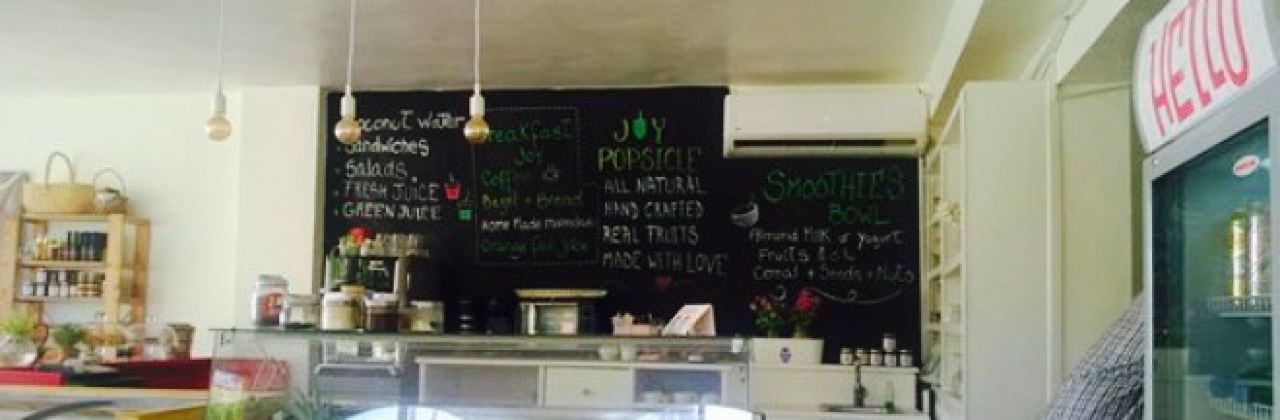 Coconut water
Sandwiches
Salads
FRESH JUICE
GREEN JUICE
Breakfast
JOY
Coffee
Bread
Home Made
Orange
JOY
POPSICLE
ALL NATURAL
HAND CRAFTED
REAL FRUITS
MADE WITH LOVE
SMOOTHIES
BOWL
Almond Milk or yogurt
Fruits
Cereal + Seeds + Nuts
HELLO